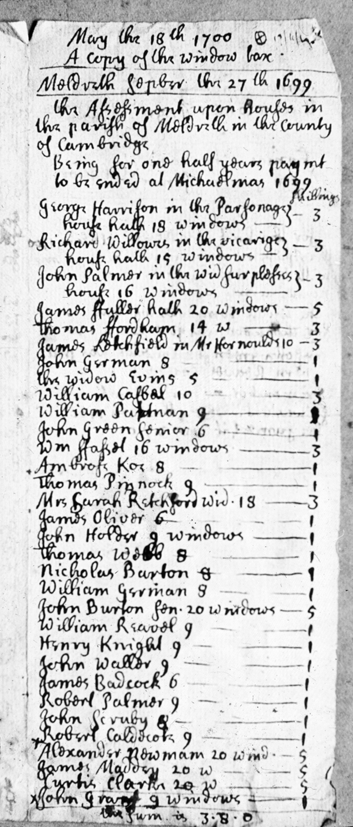 May the 18 th 1700
A Copy of the window tax
Meldreth Sepber the 27 th 1699
the Assessment upon houses in
the parish of Meldreth in the County
of Cambridge
Being for one half years paymt
to be ended at Michaelmas 1699
shillings
George Harrison in the Parsonage
house hath 18 windows — 3
Richard Willows in the vicarige
house hath 15 windows — 3
John Palmer in the wid
house 16 windows — 3
James hath 20 windows — 5
Thomas 14 w — 3
James in Mr 10 — 3
John German 8 — 1
the widow Evins 5 — 1
William Cassel 10 — 3
William 9 — 1
John Green Senior 6 — 1
Wm Hassel 16 windows — 3
Ambrose 8 — 1
Thomas Pinnock 9 — 1
Mrs Sarah Retchford Wid. 18 — 3
James Oliver 6 — 1
John Holder 9 windows — 1
Thomas Webb 8 — 1
Nicholas Burton 8 — 1
William German 8 — 1
John Burton Sen. 20 windows — 5
William Reavel 9 — 1
Henry Knight 9 — 1
John Waller 9 — 1
James Badcock 6 — 1
Robert Palmer 9 — 1
John Scruby 8 — 1
x Robert Caldecote 9 — 1
Alexander Newmam 20 wind. — 5
James 20 w — 5
Curtis Clarke 20 w — 5
x John Grant 9 windows — 1
the Sum is 3.8.0